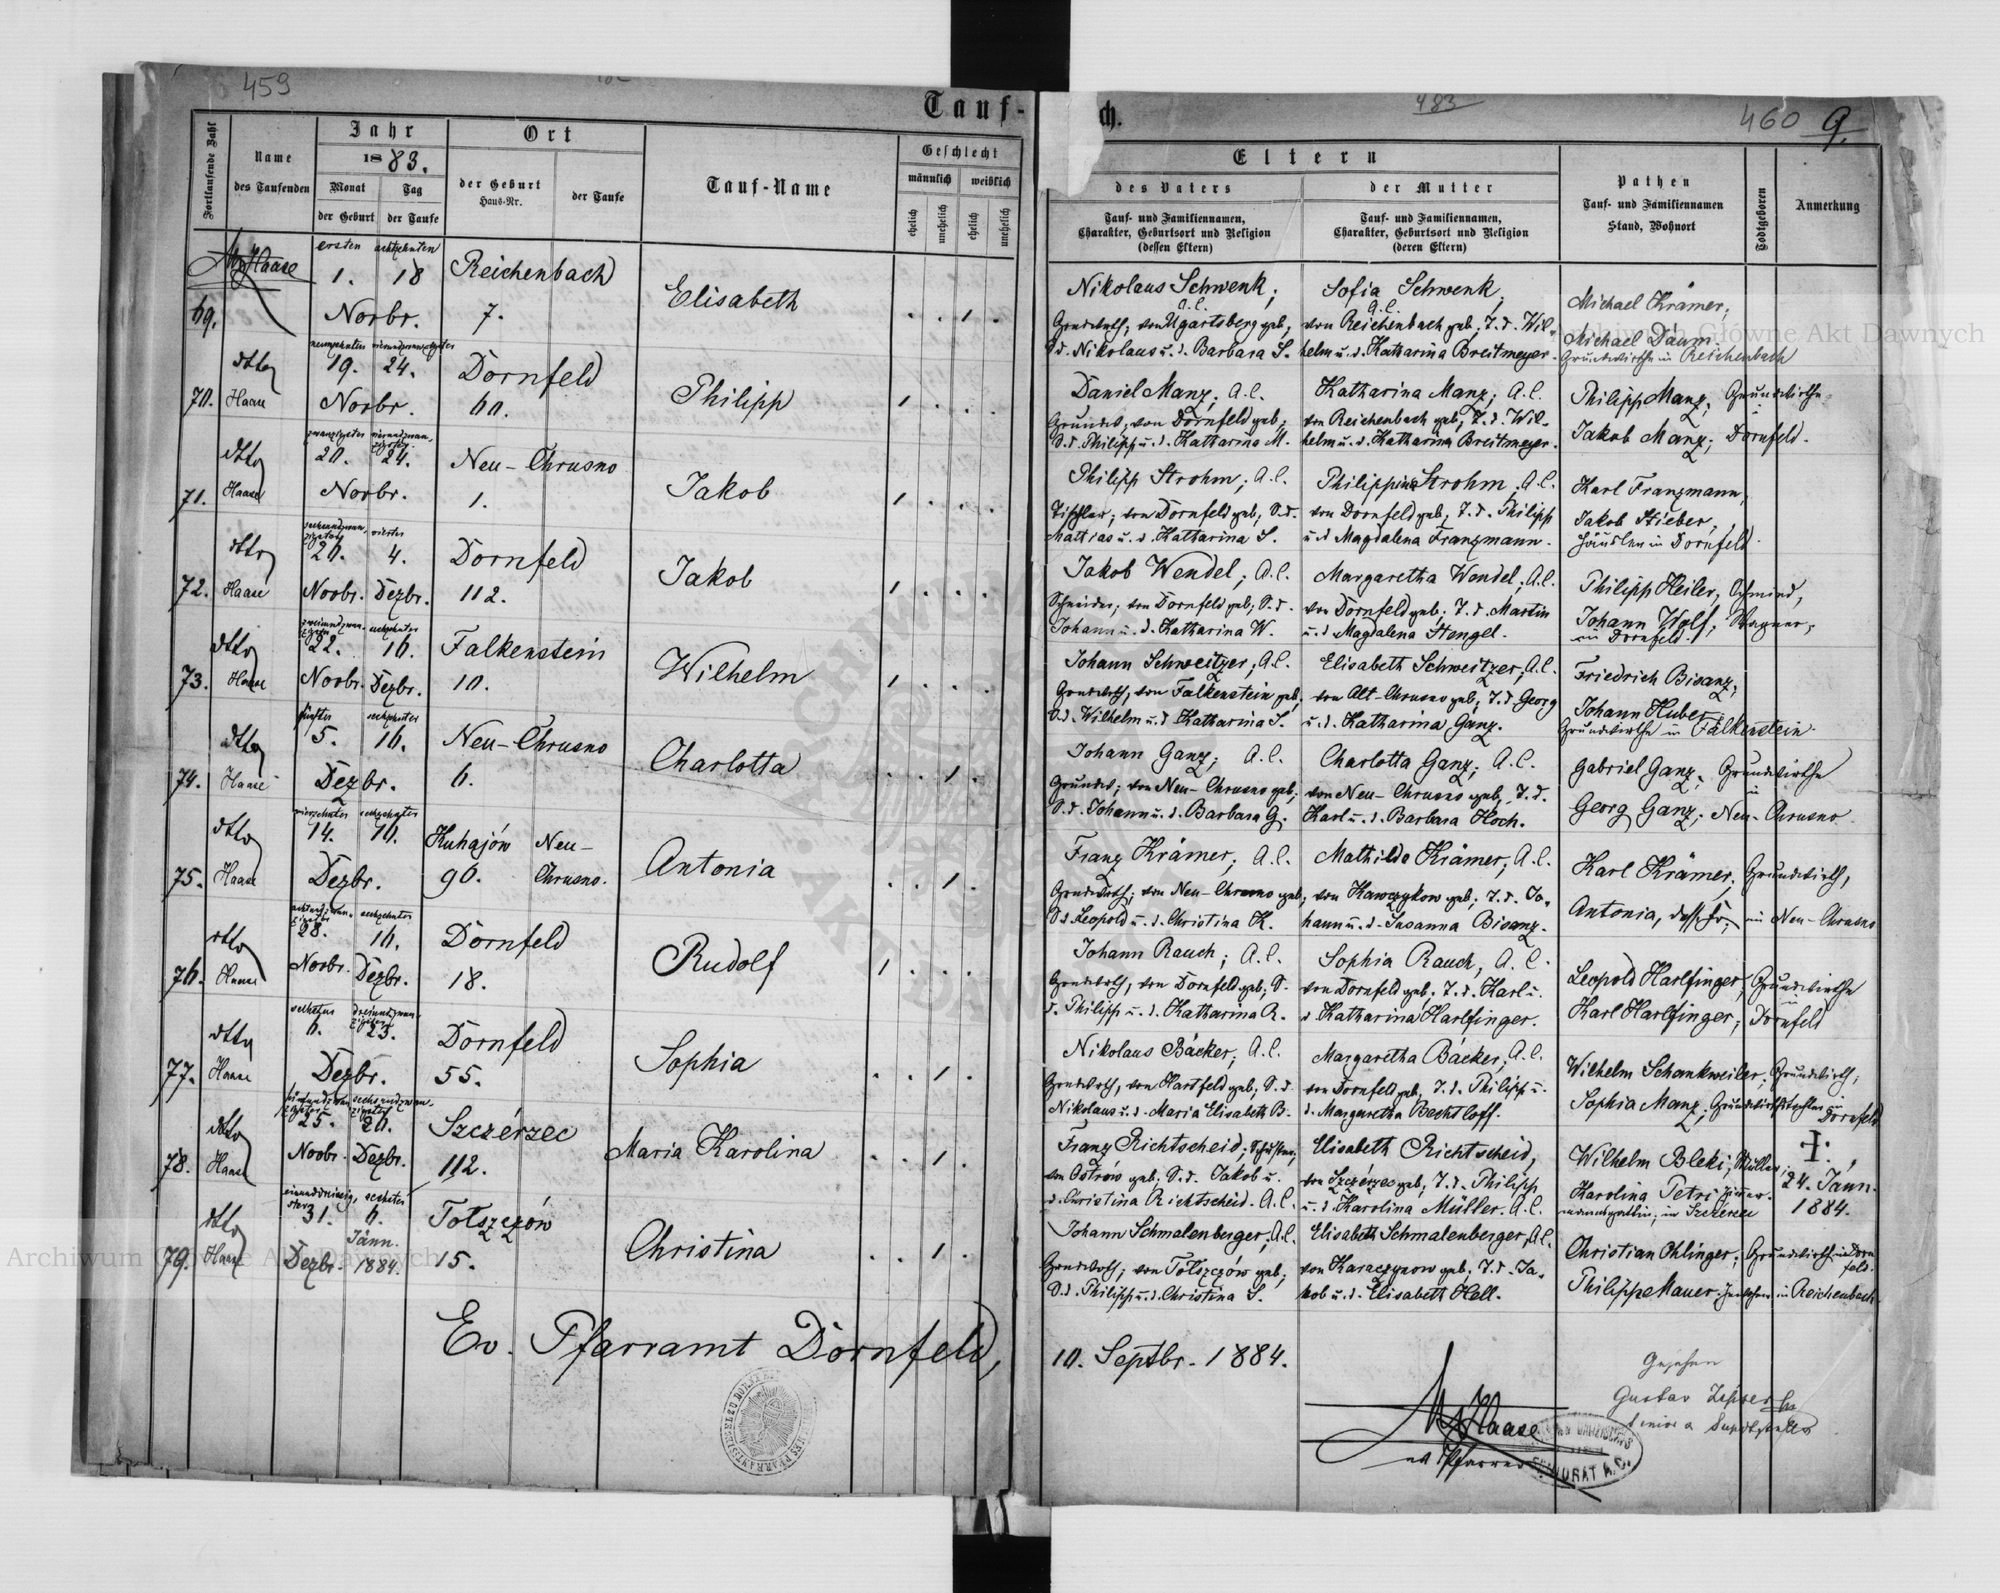 459
Tauf-
Fortlaufende Zahl
Name
des Taufenden
Jahr
1883.
Monat
Tag
der Geburt
der Taufe
Ort
der Geburt
Haus-Nr.
der Taufe
Tauf-Name
Geschlecht
männlich
weiblich
ehelich
unehelich
ehelich
unehelich
ch.
483
460
9.
Eltern
des Vaters
Tauf- und Familiennamen,
Charakter, Geburtsort und Religion
(dessen Eltern)
der Mutter
Tauf- und Familiennamen,
Charakter, Geburtsort und Religion
(deren Eltern)
Pathen
Tauf- und Familiennamen
Stand, Wohnort
Todtgeboren
Anmerkung
Haase
ersten achtzehnten
1. 18
Reichenbach
69.
Novbr.
7.
Elisabeth
Nikolaus Schwenk;
A.C.
Grundwirth; von Ugartsberg geb;
S.d. Nikolaus u. d. Barbara S.
Sofia Schwenk,
A.C.
von Reichenbach geb; T. d. Wil-
helm u. d. Katharina Breitmeyer.
Michael Krämer;
Michael Daum.
Grundwirthe in Reichenbach
dtto
neunzehnten vierundzwanzigsten
19. 24.
Dornfeld
70. Haase
Novbr.
60.
Philipp
Daniel Manz; A.C.
Grundw; von Dornfeld geb;
S.d. Philipp u. d. Katharina M.
Katharina Manz; A.C.
von Reichenbach geb; T. d. Wil-
helm u. d. Katharina Breitmeyer.
Philipp Manz; Grundwirthe
in
Jakob Manz; Dornfeld.
dtto
20. 24.
Neu-Chrusno
71. Haase
Novbr.
1.
Jakob
Philipp Strohm; A.C.
Tischler; von Dornfeld geb; S.d.
Mattias u. d. Katharina S.
Philippine Strohm; A.C.
von Dornfeld geb; T. d. Philipp
u. d. Magdalena Franzmann.
Karl Franzmann,
Jakob Stieber;
Häusler in Dornfeld.
dtto
26. 4.
Dornfeld
72. Haase
Novbr. Dezbr.
112.
Jakob
Jakob Wendel; A.C.
Schneider; von Dornfeld geb; S.d.
Johann u. d. Katharina W.
Margaretha Wendel; A.C.
von Dornfeld geb; T. d. Martin
u. d. Magdalena Stengel.
Philipp Heiler, Schmied,
Johann Wolf; Wagner;
in Dornfeld.
dtto
22. 16.
Falkenstein
73. Haase
Novbr. Dezbr.
10.
Wilhelm
Johann Schweitzer; A.C.
Grundwirth, von Falkenstein geb;
S.d. Wilhelm u. d. Katharina S.
Elisabeth Schweitzer; A.C.
von Alt-Chrusno geb; T. d. Georg
u. d. Katharina Ganz.
Friedrich Bisanz;
Johann Huber;
Grundwirthe in Falkenstein.
dtto
fünften sechzehnten
5. 16.
Neu-Chrusno
74. Haase
Dezbr.
6.
Charlotta
Johann Ganz; A.C.
Grundw; von Neu-Chrusno geb;
S.d. Johann u. d. Barbara G.
Charlotta Ganz; A.C.
von Neu-Chrusno geb; T. d.
Karl u. d. Barbara Hoch.
Gabriel Ganz; Grundwirthe
in
Georg Ganz; Neu-Chrusno.
dtto
vierzehnten sechzehnten
14. 16.
Kuhajów Neu-
75. Haase
Dezbr.
96. Chrusno.
Antonia
Franz Krämer; A.C.
Grundwirth; von Neu-Chrusno geb,
S.d. Leopold u. d. Christina K.
Mathilde Krämer; A.C.
von Kawczykow geb; T. d. Jo-
hann u. d. Susanna Bisanz.
Karl Krämer; Grundwirth,
Antonia, in Neu-Chrusno
dtto
28. 16.
Dornfeld
76. Haase
Novbr. Dezbr.
18.
Rudolf
Johann Rauch; A.C.
Grundwirth, von Dornfeld geb; S.
d. Philipp u. d. Katharina R.
Sophia Rauch, A.C.
von Dornfeld geb. T. d. Karl u.
d. Katharina Harlfinger.
Leopold Harlfinger; Grundwirthe
in
Karl Harlfinger; Dornfeld
dtto
6. 23.
Dornfeld
77. Haase
Dezbr.
55.
Sophia
Nikolaus Bäcker; A.C.
Grundwirth, von Hartfeld geb; S.d.
Nikolaus u. d. Maria Elisabeth B.
Margaretha Bäcker; A.C.
von Dornfeld geb, T. d. Philipp u.
d. Margaretha Bechtloff.
Wilhelm Schankweiler; Grundwirth;
Sophia Manz; Grundwirthstochter in
Dornfeld
dtto
25. 26.
Szczérzec
78. Haase
Novbr. Dezbr.
112.
Maria Karolina
Franz Richtscheid; Schuster;
von Ostrów geb; S.d. Jakob u.
d. Christina Richtscheid. A.C.
Elisabeth Richtscheid,
von Szczérzec geb; T. d. Philipp
u. d. Karolina Müller. A.C.
Wilhelm Bleki; Müller;
Karolina Petri Zimmer-
mannsgattin; in Szczérzec
†.
24. Jänn.
1884.
dtto
31. 6.
Jänn.
Tołszczów
79. Haase
Dezbr. 1884.
15.
Christina
Johann Schmalenberger; A.C.
Grundwirth; von Tołszczów geb;
S.d. Philipp u. d. Christina S.
Elisabeth Schmalenberger, A.C.
von Karaczynow geb; T. d. Ja-
kob u. d. Elisabeth Hell.
Christian Ohlinger; Grundwirth in Dorn
feld.
Philipp Mauer in Reichenbach.
Ev. Pfarramt Dornfeld,
10. Septbr. 1884.
Haase
ev. Pfarrer
Gesehen
Gustav
SENIORAT A.C.
Archiwum Główne Akt Dawnych
Archiwum Główne Akt Dawnych